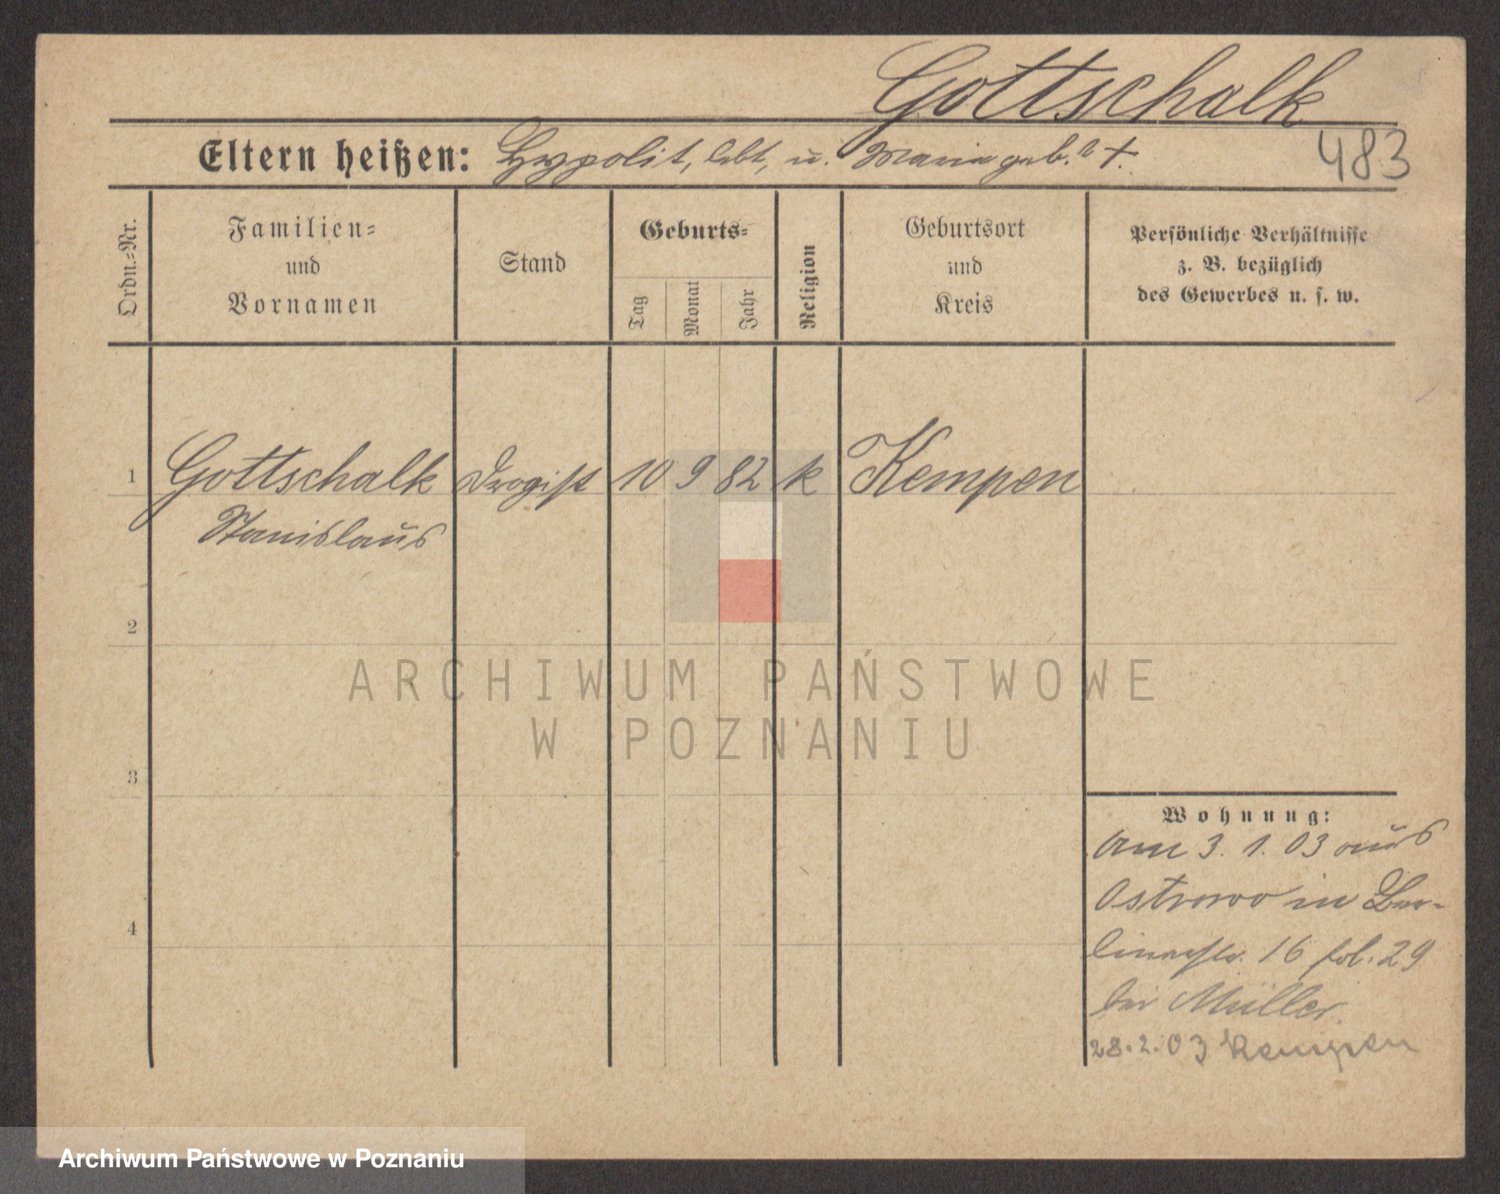 Gottschalk
Eltern heißen: Hypolit, lebt, u. Maria geb. ? +
483
Ordn.-Nr.
Familien-
und
Vornamen
Stand
Geburts-
Tag
Monat
Jahr
Religion
Geburtsort
und
Kreis
Persönliche Verhältnisse
z. B. bezüglich
des Gewerbes u. s. w.
1 Gottschalk Drogist 10 9 82 k Kempen
Stanislaus
2
ARCHIWUM PAŃSTWOWE
W POZNANIU
3
4
Wohnung:
Am 3. 1. 03 aus
Ostrowo in Ber-
linerstr. 16 fol. 29
bei Müller.
28. 2. 03 Kempen
Archiwum Państwowe w Poznaniu